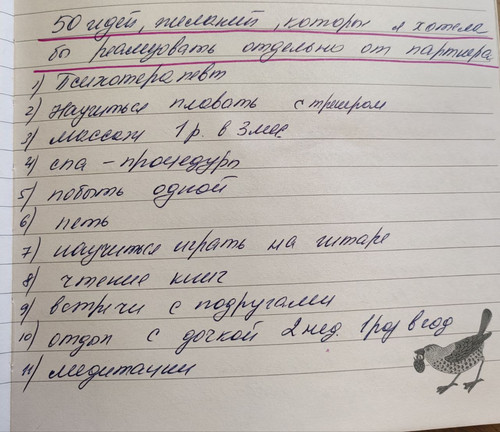 50 идей, желаний, которы я хотела
бы реализовать отдельно от партнера
1) Психотерапевт
2) Научиться плавать с тренером
3) массаж 1 р. в 3 мес
4) спа - процедуры
5) побыть одной
6) петь
7) научиться играть на гитаре
8) чтение книг
9) встречи с подругами
10) отдых с дочкой 2 нед. 1 раз в год
11) медитации